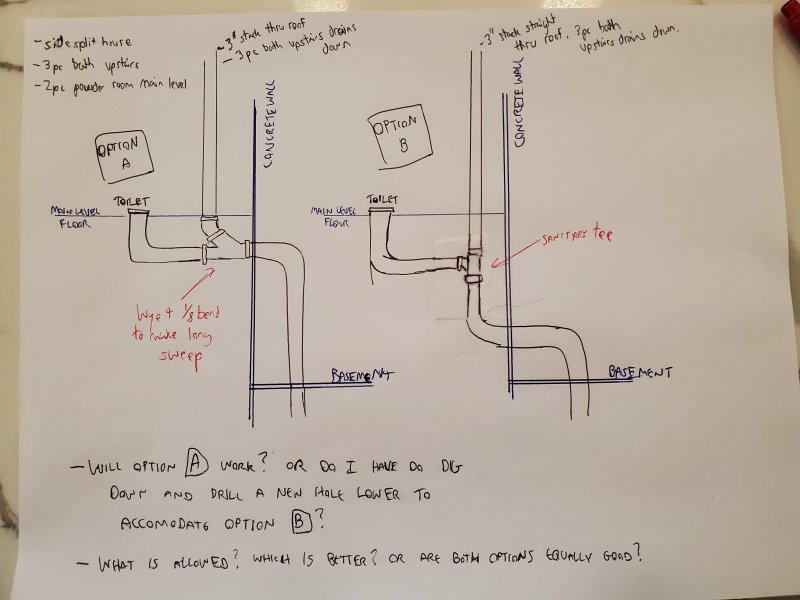 - side split house
- 3pc bath upstairs
- 2pc powder room main level
- 3" stack thru roof
- 3pc bath upstairs drains
down
- 3" stack straight
thru roof. 3pc bath
upstairs drains down.
CONCRETE WALL
CONCRETE WALL
OPTION
A
OPTION
B
TOILET
MAIN LEVEL
FLOOR
TOILET
MAIN LEVEL
FLOOR
SANITARY tee
Wye & 1/8 bend
to make long
sweep
BASEMENT
BASEMENT
- WILL OPTION A WORK? OR DO I HAVE DO DIG
DOWN AND DRILL A NEW HOLE LOWER TO
ACCOMODATE OPTION B?
- WHAT IS ALLOWED? WHICH IS BETTER? OR ARE BOTH OPTIONS EQUALLY GOOD?